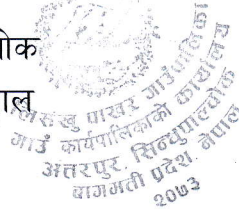 ोक
ाल
पाखर गाउँपालिका
गाउँ कार्यपालिकाको कार्यालय
अत्तरपुर, सिन्धुपाल्चोक
बागमती प्रदेश, नेपाल
२०७३